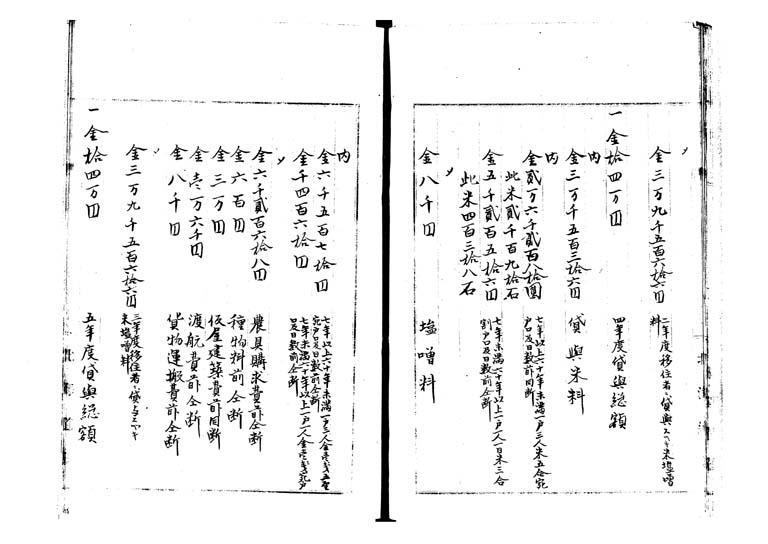 〃
金三万九千五百六拾六円 二年度移住者ヘ貸與スヘキ米塩噌
料
一金拾四万円 四年度貸與総額
内
金三万千五百三拾六円 貸與米料
内
金貳万六千貳百八拾圓 七年以上六十年未満一戸三人米五合宛
戸口及日数前同断
此米貳千百九拾石
金五千貳百五拾六円 七年未満六十年以上一戸一人一日米三合
割戸口及日数前仝断
此米四百三拾八石
〃
金八千円 塩噌料
内
金六千五百七拾円 七年以上六十年未満一戸三人
宛戸口及日数前仝断
金千四百六拾円 七年未満六十年以上一戸一人
口及日数前仝断
〃
金六千貳百六拾八円 農具購求費前仝断
金六百円 種物料前仝断
金三万円 仮屋建築費前同断
金壱万六千円 渡航費前仝断
金八千円 貨物運搬費前仝断
〃
金三万九千五百六拾六円 三年度移住者ヘ貸与スヘキ
米塩噌料
一金拾四万円 五年度貸與総額